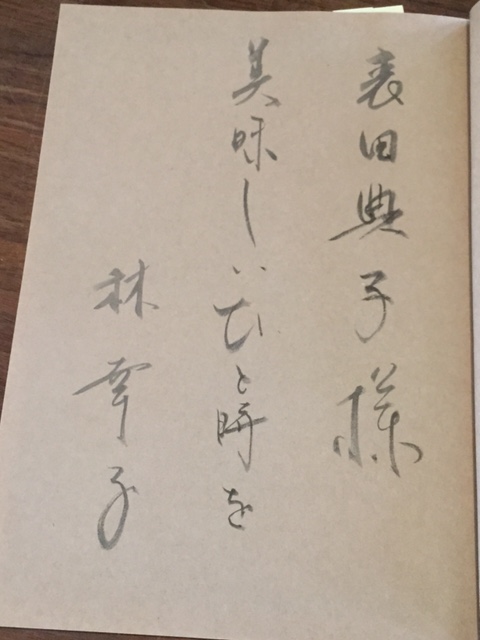 表田典子様
美味しいひと時を
林幸子